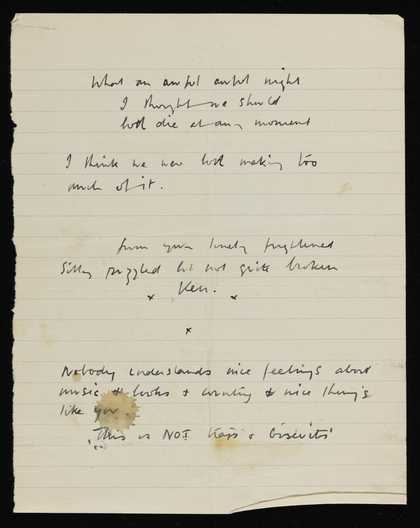 What an awful awful night
I thought we should
both die at any moment
I think we were both making too
much of it.
from your lonely frightened
silly puzzled but not quite broken
Ken.
x x
x
Nobody understands nice feelings about
music & books & country & nice things
like you.
"This is NOT & biscuits"